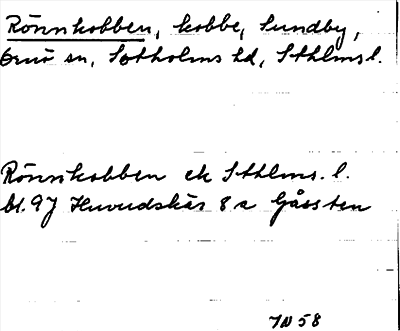 Rönnkobben, kobbe, Sundby,
Ornö sn, Sotholms hd, Sthlms l.
Rönnkobben ek Sthlms. l.
bl. 97 Huvudskär 8 a Gåssten
IN 58